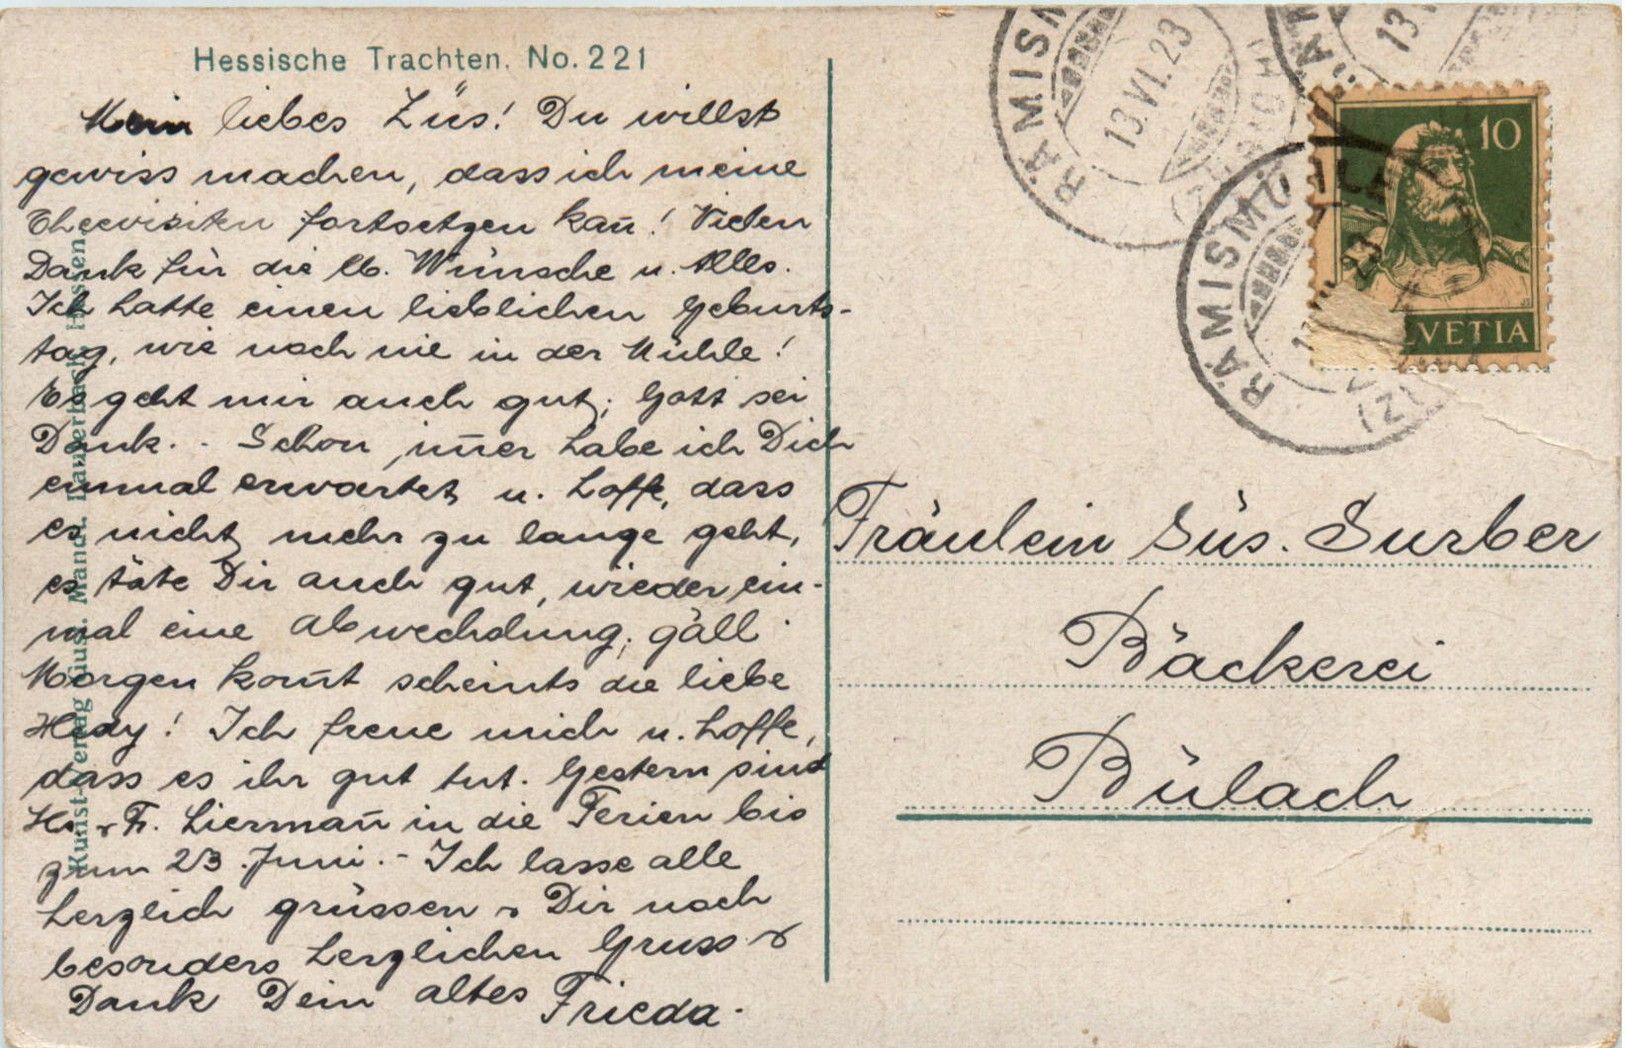 Hessische Trachten. No. 221
Mein liebes Züs! Du willst
gewiss machen, dass ich meine
Theevisiten fortsetzen kan̄! Vielen
Dank für die lb. Wünsche u. Alles.
Ich hatte einen lieblichen Geburts-
tag, wie noch nie in der Mühle!
Es geht mir auch gut, Gott sei
Dank. - Schon im̄er habe ich Dich
einmal erwartet u. hoffe, dass
es nicht mehr zu lange geht,
es täte Dir auch gut, wieder ein-
mal eine Abwechslung, gäll.
Morgen kom̄t scheints die liebe
Hedy! Ich freue mich u. hoffe,
dass es ihr gut tut. Gestern sind
Hr. & Fr. Lierman̄ in die Ferien bis
zum 23. Juni. - Ich lasse alle
herzlich grüssen & Dir noch
besonders herzlichen Gruss &
Dank Dein altes Frieda.
Kunst-Verlag Gust. Mandt. Lauterbach, Hessen.
RÄMISM
13.VI.23
13.V
RÄMISMÜHLE
23
(Z
10
LVETIA
Fräulein Süs. Surber
Bäckerei
Bülach